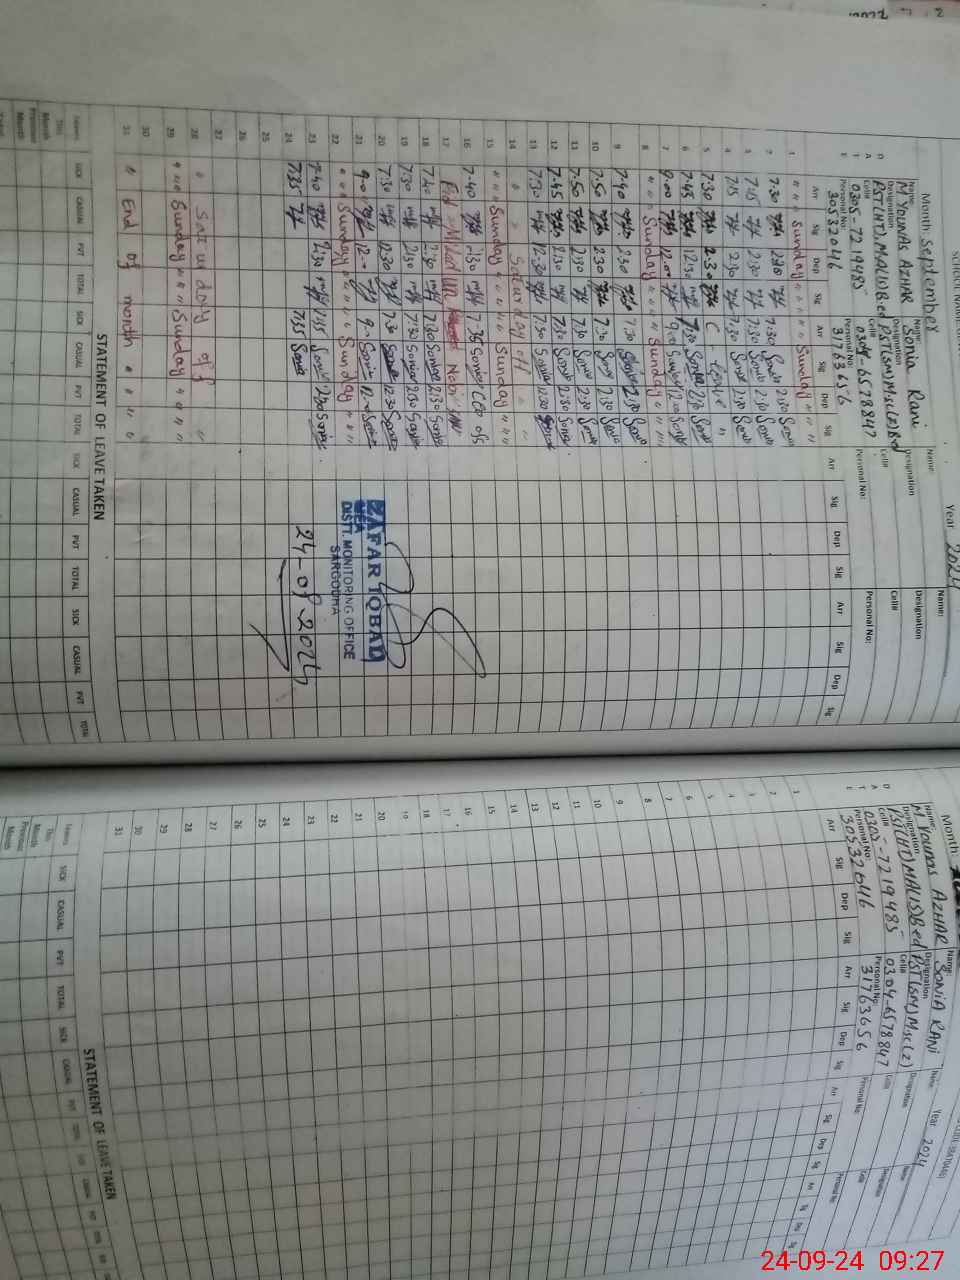 Month: September Year 2024
Name: M. YOUNAS AZHAR Name: Sonia Rani Name: Name:
Designation PST(HT) MA(IS) B.ed Designation PST(SM) Msc(Z) Bed Designation Designation
Cell# 0305-7219485 Cell# 0304-6578847 Cell# Cell#
Personal No: 30532046 Personal No: 31763656 Personal No: Personal No:
DATE Arr Sig Dep Sig Arr Sig Dep Sig Arr Sig Dep Sig Arr Sig Dep Sig
1 " " Sunday " " " Sunday " "
2 7:30 2:30 7:30 Sonia 2:30 Sonia
3 7:45 2:30 7:30 Sonia 2:30 Sonia
4 7:45 2:30 7:30 Sonia 2:30 Sonia
5 7:30 2:30 C Leave "
6 7:45 12:30 7:30 Sonia Sonia
7 9:00 12:00 9:0 Sonia 12:0 Sonia
8 " Sunday " " " Sunday " " "
9 7:40 2:30 7:30 Sonia 2:30 Sonia
10 7:50 2:30 7:30 Sonia 2:30 Sonia
11 7:50 2:30 7:30 Sonia 2:30 Sonia
12 7:45 2:30 7:30 Sonia 2:30 Sonia
13 7:30 12:30 7:30 Sonia 12:30 Sonia
14 " " Saturday off " "
15 " " Sunday " " " " Sunday " " "
16 7:40 2:30 7:35 Sonia
17 Eid Milad un Nabi
18 7:40 2:30 7:30 Sonia 2:30 Sonia
19 7:30 2:30 7:30 Sonia 2:30 Sonia
20 7:30 12:30 7:30 Sonia 12:30 Sonia
21 9:0 12:0 9:0 Sonia 12:0 Sonia
22 " " Sunday " " " " Sunday " "
23 7:40 2:30 7:35 Sonia 2:30 Sonia
24 7:35 7:35 Sonia
25
26
27
28 " Saturday off "
29 " " " Sunday " " " Sunday " " " "
30
31 " End of month " " " "
ZAFAR IQBAL
MEA
DISTT. MONITORING OFFICE
SARGODHA
24-09-2024
STATEMENT OF LEAVE TAKEN
Leaves SICK CASUAL PVT TOTAL SICK CASUAL PVT TOTAL SICK CASUAL PVT TOTAL SICK CASUAL PVT TOTAL
This Month
Previous Month
Month: Year 2024
Name: M Younas AZHAR Name: SONIA RANI Name
Designation PST(HT) MA(IS) Bed Designation PST(SM) Msc(Z) Designation
Cell# 0305-7219485 Cell# 0304-6578847 Cell#
Personal No: 30532046 Personal No: 31763656 Personal No: Personal No
DATE Arr Sig Dep Sig Arr Sig Dep Sig Arr Sig Dep Sig Arr Sig Dep Sig
1
2
3
4
5
6
7
8
9
10
11
12
13
14
15
16
17
18
19
20
21
22
23
24
25
26
27
28
29
30
31
STATEMENT OF LEAVE TAKEN
Leaves SICK CASUAL PVT TOTAL SICK CASUAL PVT TOTAL
This Month
Previous Month
24-09-24 09:27